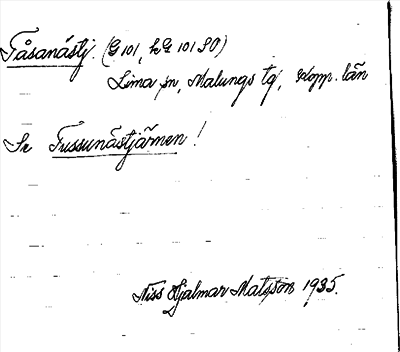 Tåsanästj. (G 101, hG 101 SO)
Lima sn, Malungs tg, Kopp. län
Se Tussunästjärnen!
Niss Hjalmar Matsson 1935.